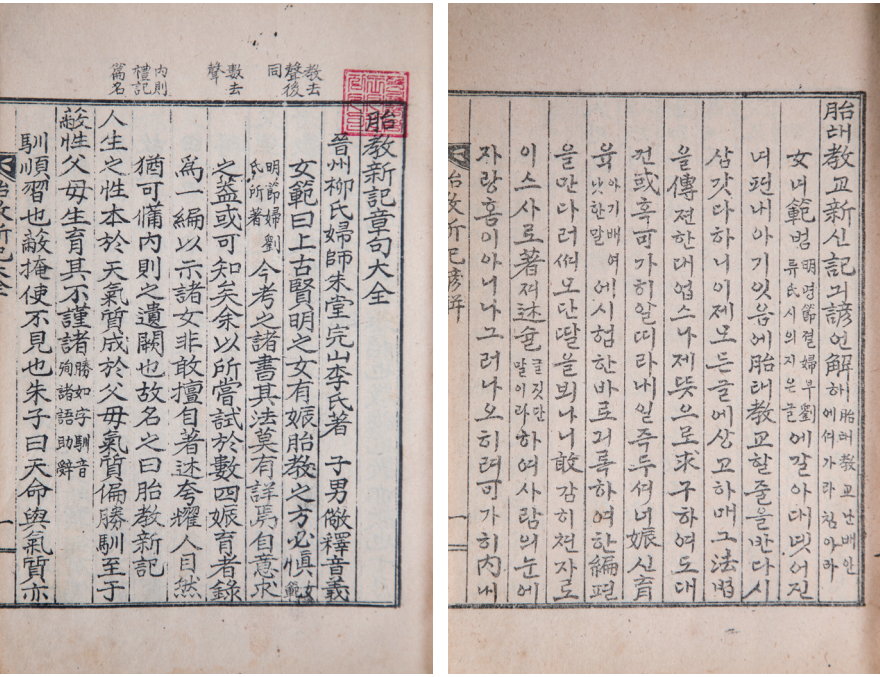 教去聲後同
數去聲
內則禮記篇名
胎教新記章句大全
晉州柳氏婦師朱堂完山李氏著 子男儆釋音義
女範曰上古賢明之女有娠胎教之方必愼女範
明節婦劉氏所著今考之諸書其法莫有詳焉自意求
之蓋或可知矣余以所嘗試於數四娠育者錄
爲一編以示諸女非敢擅自著述夸耀人目然
猶可備內則之遺闕也故名之曰胎教新記
人生之性本於天氣質成於父母氣質偏勝馴至于
蔽性父母生育其不謹諸勝如字馴音殉諸語助辭
馴順習也蔽掩使不見也朱子曰天命與氣質亦
胎教新記大全 一
胎태教교新신記긔諺언解해胎태教교난배안에셔가라침이라
女녀範범明명節졀婦부劉류氏시의지은글에갈아대녯어진
녀편내아기잇음에胎태教교할줄을반다시
삼갓다하니이제모든글에상고하매그法법
을傳젼한대업스나제뜻으로求구하여도대
컨或혹可가히알띠라내일즉두셔너娠신育
육아기배여낫한말에시험한바로긔록하여한編편
을만다러써모단딸을뵈나니敢감히쳔자로
이스사로著져述슐글짓단말이라하여사람의눈에
자랑홈이아니나그러나오히려可가히內내
胎教新記諺解 一